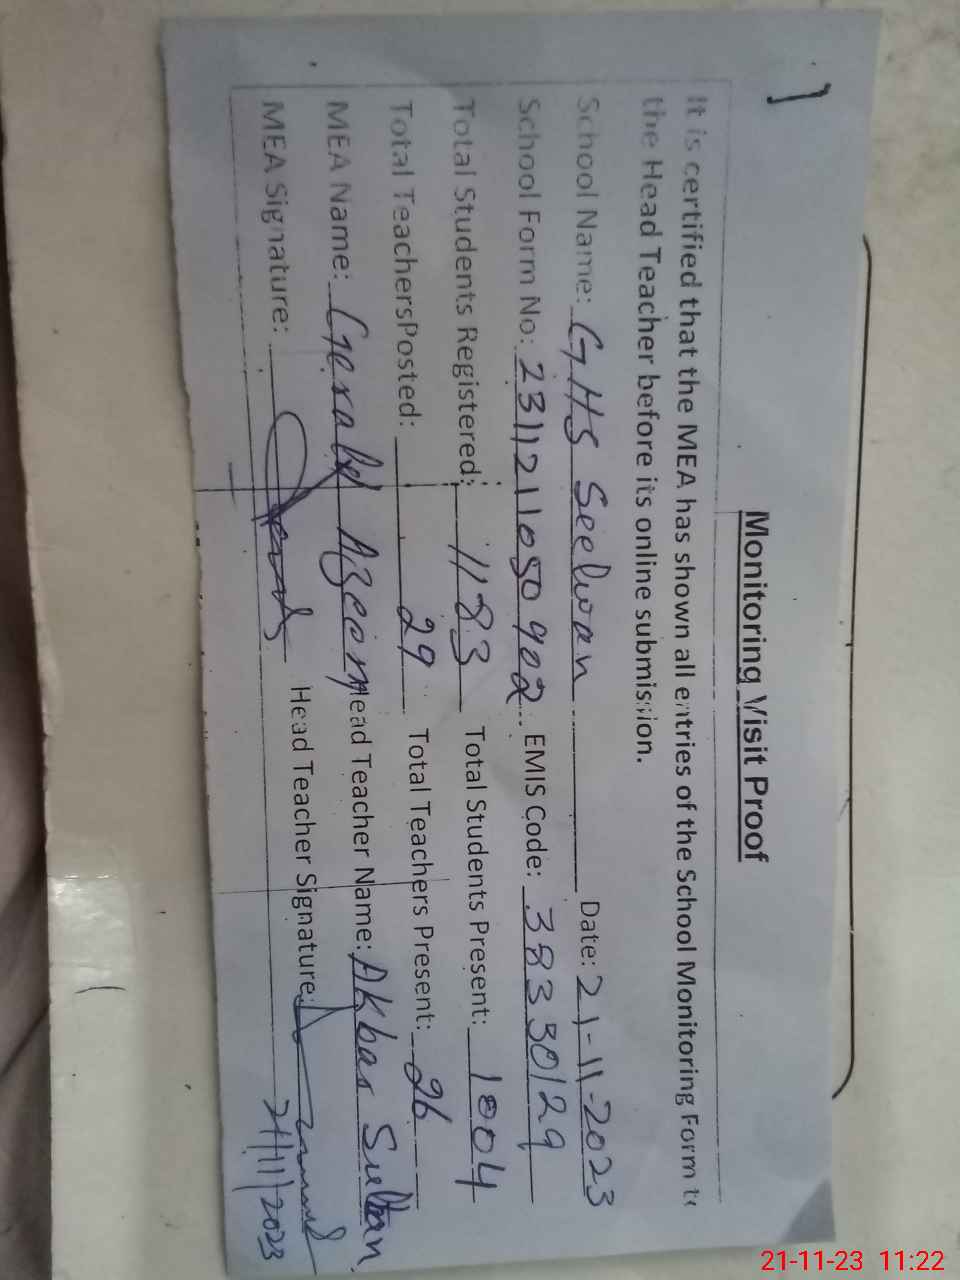 Monitoring Visit Proof
It is certified that the MEA has shown all entries of the School Monitoring Form to
the Head Teacher before its online submission.
School Name: GHS Seelwan Date: 21-11-2023
School Form No: 231121105090 EMIS Code: 38330129
Total Students Registered: 1183 Total Students Present: 1004
Total TeachersPosted: 29 Total Teachers Present: 26
MEA Name: Azeem Head Teacher Name: Akbar Sultan
MEA Signature: Head Teacher Signature:
21/11/2023
21-11-23 11:22